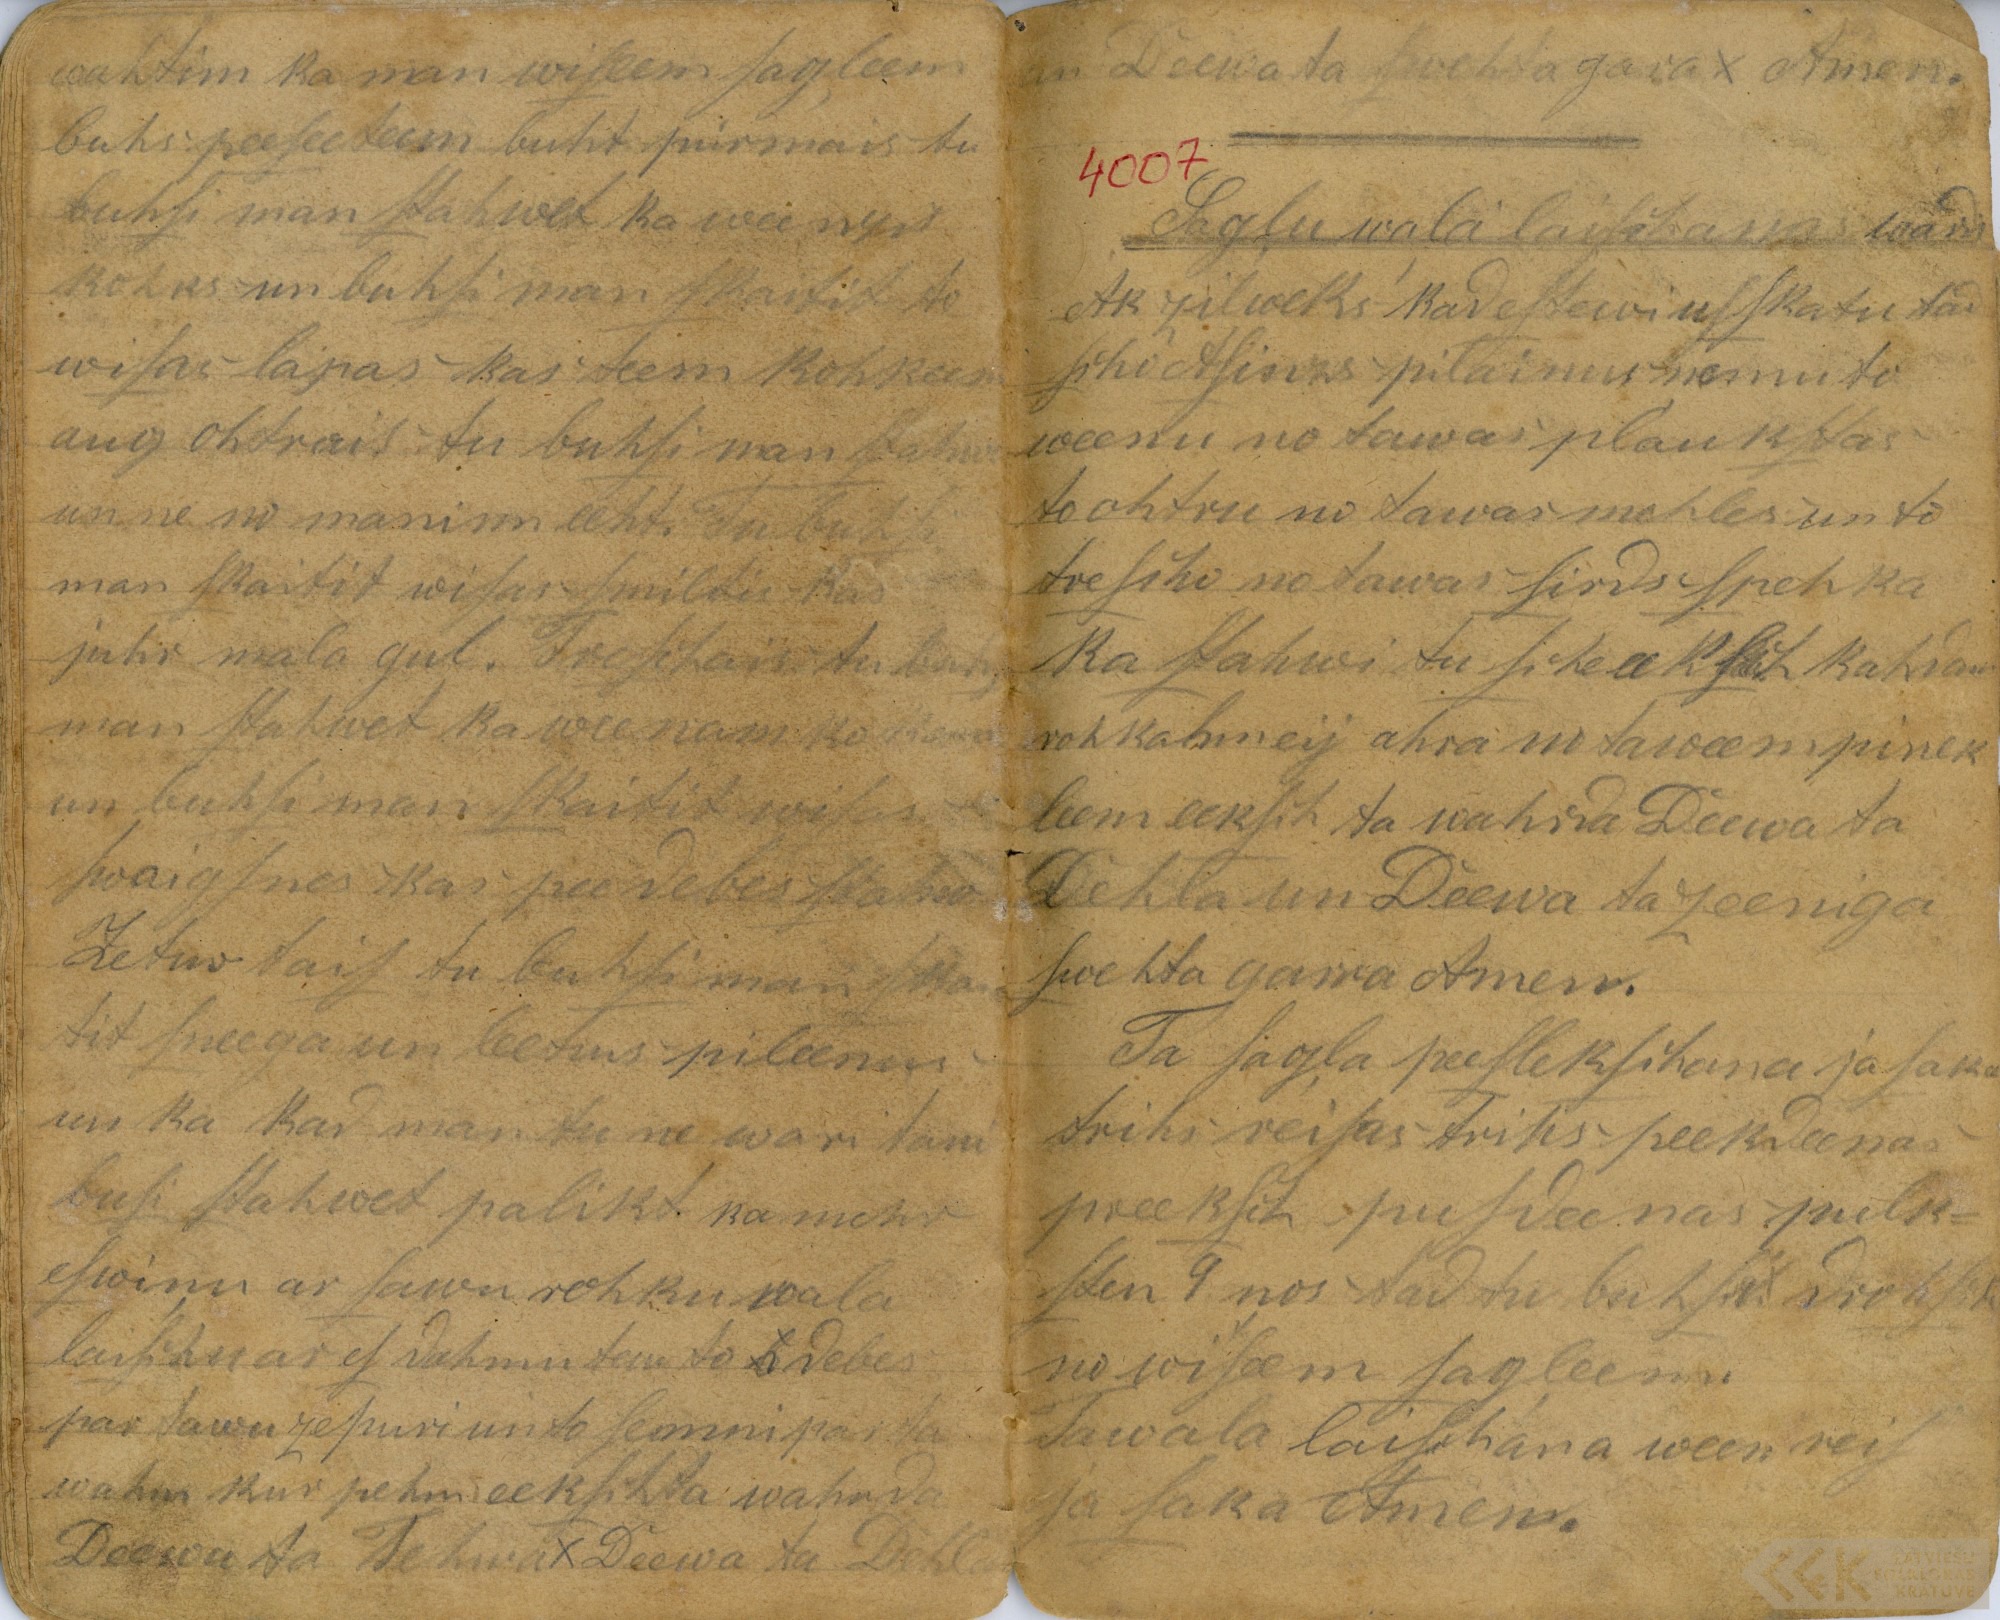 wahtim ka man wiseem sagleem
buhs peeseeteem buht pirmais tu
buhsi man stahwet ka wee
kohks un buhsi man skaitit to
wisas lapas kas teem kohkeem
aug ohtrais tu buhsi man stahwe
un ne no maninn eeht. Tu buhsi
man skaitit wisas smiltis kas
juhr mala gul. Treschais tu buhs
man stahwet ka weenam
un buhsi man skaitit wisas
swaigsnes kas pee debes stahw
Zetur tais tu buhsi man skai
tit sneega un leetus pileenus
un ka kad man tu ne wari tam
busi stahwet palikt ka mehr
eswinu ar sawu rohku wala
laischu ar es dahmu tew to debes
par tawu zepuri un to semmi par ta
wahm kur pehm eekschta wahrda
Deewa ta Tehwa x Deewa ta Dehla
un Deewa ta swehta gara x Amen.
4007
Saglu wala laischanas wardi
Ak zilweks kad es tewi usskatu tad
scho Asins pilainus nemu to
weenu no tawas plaukstas
to ohtru no tawas mehles un to
trescho no tawas sirds spehka
Ka stahwi tu scheeksch kahdam
rohkahm eij ahra no taweem pinek
leem eeksch ta wahrda Deewa ta
Dehla un Deewa ta zeeniga
swehta garra Amen.
Ta sagla peeslekschana ja saka
trihs reisas trihs peekdeenas
preeksch pusdeenas pulk=
sten 9 nos tad tu buhsi drohsch
no wiseem sagleem.
Ta wala laischana ween reis
ja saka Amen.
LATVIEŠU
FOLKLORAS
KRĀTUVE